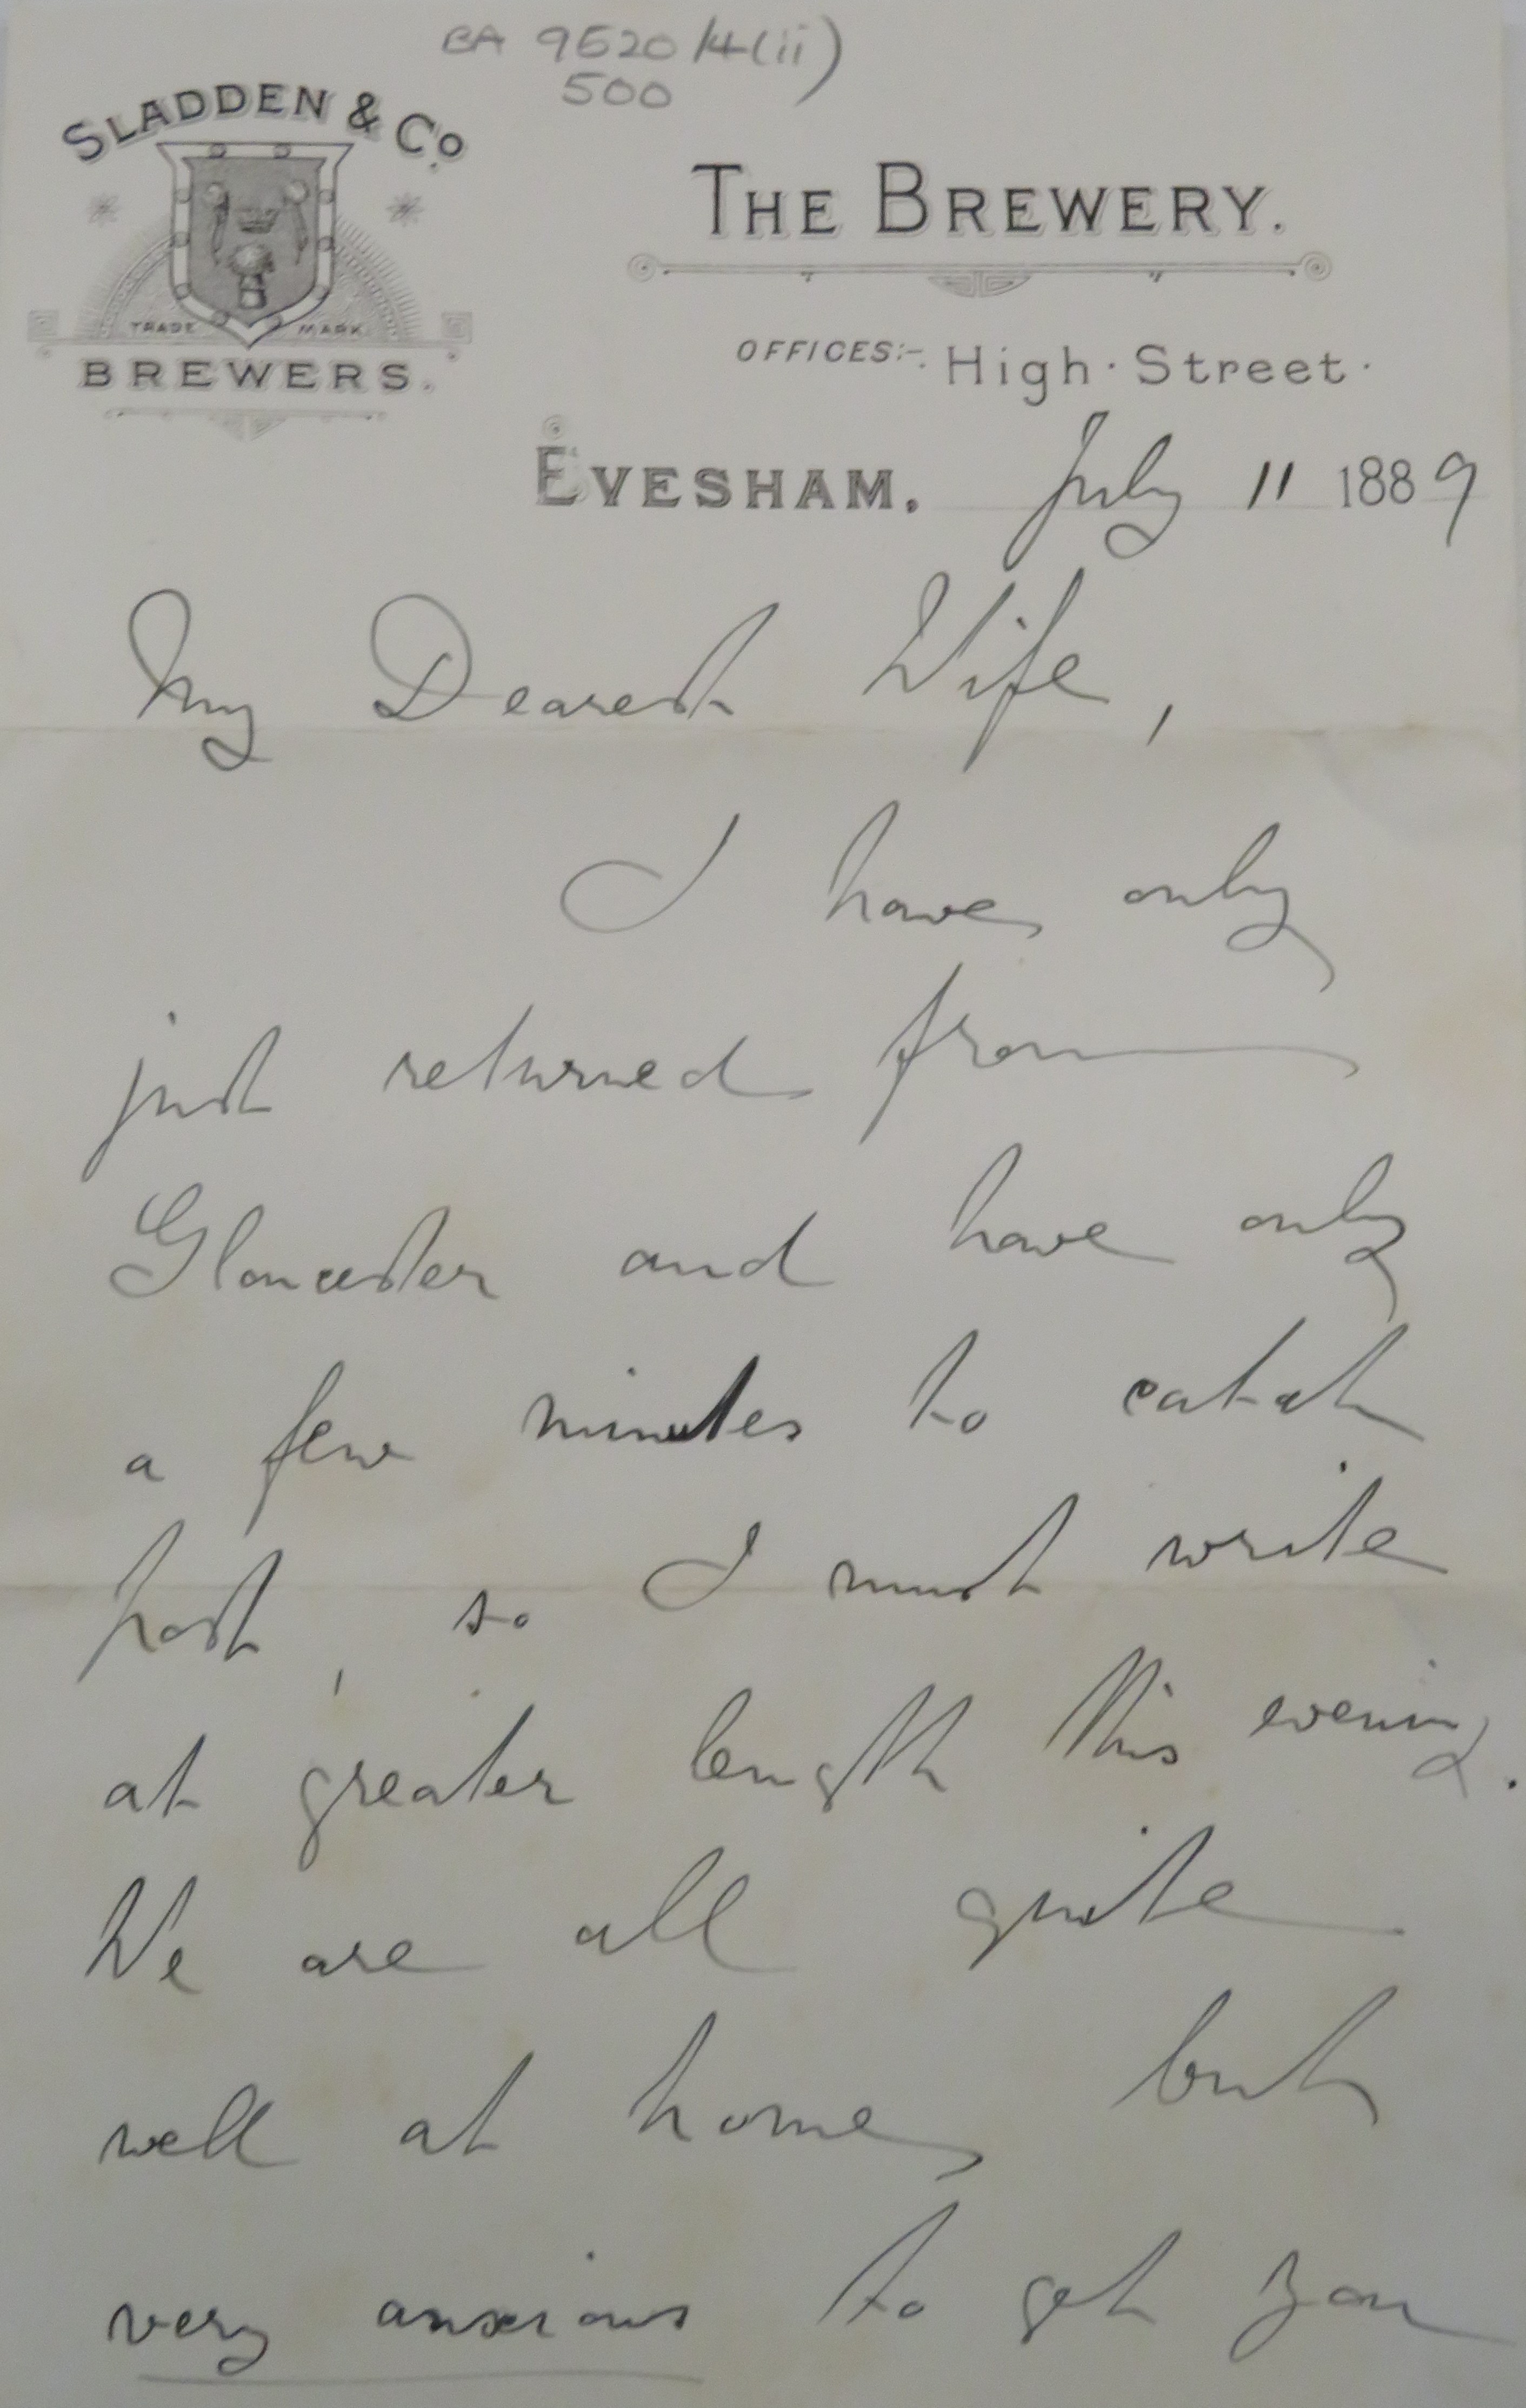 BA 9520/4(ii)
500
SLADDEN & Co.
TRADE MARK
BREWERS.
THE BREWERY.
OFFICES:- High · Street ·
EVESHAM. July 11 1889
My Dearest Wife,
I have only
just returned from
Gloucester and have only
a few minutes to catch
post, so I must write
at greater length this evening.
We are all quite
well at home but
very anxious to get you